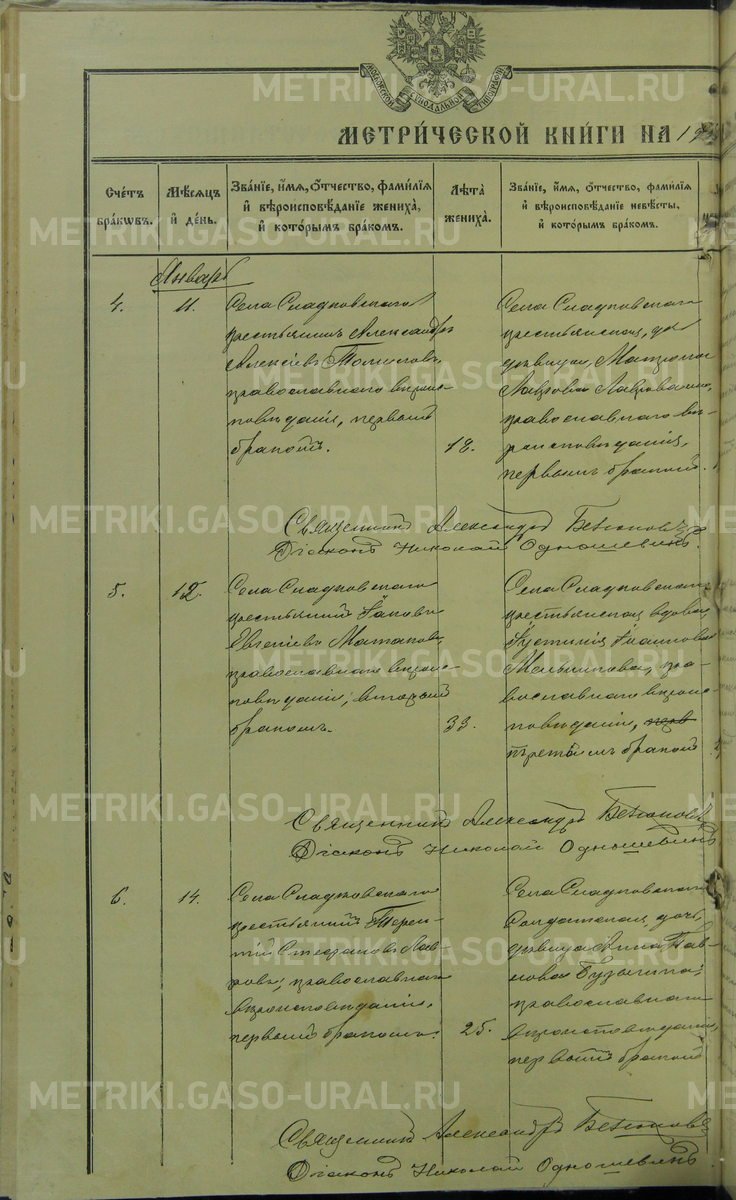 МОСКОВСКОЙ СѴНОДАЛЬНОЙ ТИПОГРАФІИ
МЕТРИ́ЧЕСКОЙ КНИ́ГИ НА 19
Сче́тъ бра́кѡвъ.
Мѣ́сѧцъ и҆ де́нь.
Зва́нїе, и҆́мѧ, ѻ҆́тчество, фами́лїѧ
и҆ вѣроисповѣ́данїе жениха̀,
и҆ кото́рымъ бра́комъ.
Лѣ́та
жениха̀.
Зва́нїе, и҆́мѧ, ѻ҆́тчество, фами́лїѧ
и҆ вѣроисповѣ́данїе невѣ́сты,
и҆ кото́рымъ бра́комъ.
Январь
4.
11.
Села Сладковскаго
крестьянинъ Александръ
Алексіевъ
православнаго вѣроис-
повѣданія, первымъ
бракомъ.
18.
Села Сладковскаго
крестьянская, до
дѣвица, Матрона
Лаврова
православнаго вѣ-
роисповѣданія,
первымъ бракомъ.
Священникъ Александръ
Діаконъ Николай Одношевинъ
5.
12.
Села Сладковскаго
крестьянинъ Іаковъ
Евгеніевъ
православнаго вѣроис-
повѣданія, вторымъ
бракомъ.
33.
Села Сладковскаго
крестьянская вдова,
Іустинія
Мельникова, пра-
вославнаго вѣроис-
повѣданія, перв
третьимъ бракомъ
Священникъ Александръ
Діаконъ Николай Одношевинъ
6.
14.
Села Сладковскаго
крестьянинъ Терен-
тій Стефановъ Лав-
ровъ, православнаго
вѣроисповѣданія,
первымъ бракомъ.
25.
Села Сладковскаго
Солдатская дочь,
дѣвица Анна Пав-
лова Бузыгина,
православнаго
вѣроисповѣданія,
первымъ бракомъ
Священникъ Александръ
Діаконъ Николай Одношевинъ
METRIKI.GASO-URAL.RU